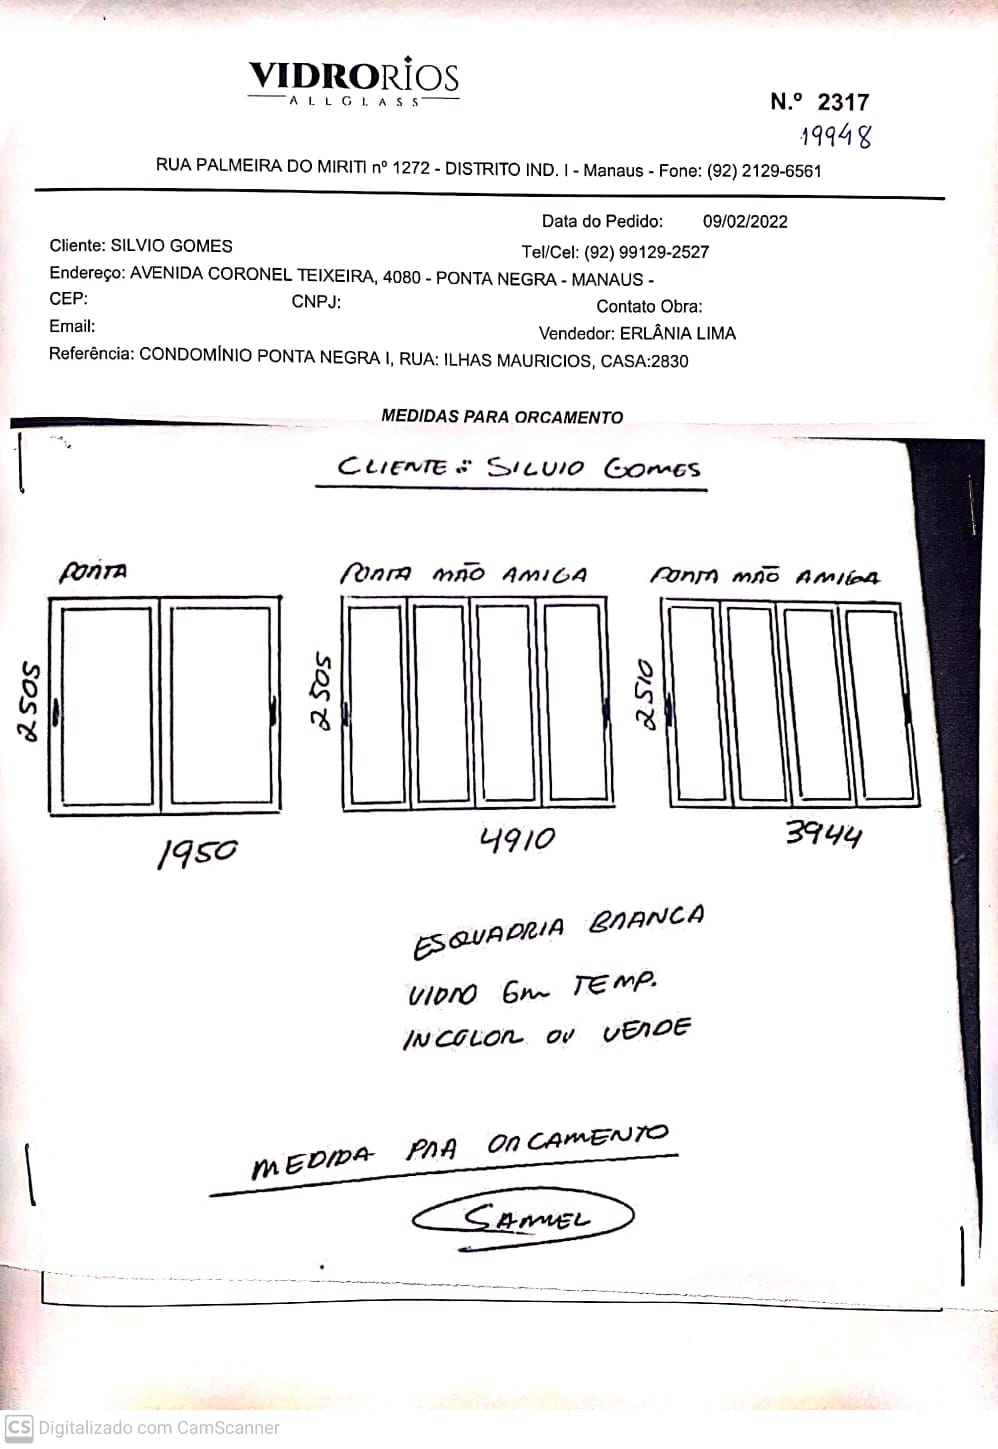 VIDRORIOS
ALLGLASS
N.º 2317
19948
RUA PALMEIRA DO MIRITI nº 1272 - DISTRITO IND. I - Manaus - Fone: (92) 2129-6561
Data do Pedido: 09/02/2022
Cliente: SILVIO GOMES
Tel/Cel: (92) 99129-2527
Endereço: AVENIDA CORONEL TEIXEIRA, 4080 - PONTA NEGRA - MANAUS -
CEP: CNPJ: Contato Obra:
Email:
Vendedor: ERLÂNIA LIMA
Referência: CONDOMÍNIO PONTA NEGRA I, RUA: ILHAS MAURICIOS, CASA:2830
MEDIDAS PARA ORCAMENTO
CLIENTE: SILVIO GOMES
PORTA
PORTA MÃO AMIGA
PORTA MÃO AMIGA
2505
2505
2510
1950
4910
3944
ESQUADRIA BRANCA
VIDRO 6m TEMP.
INCOLOR OU VERDE
MEDIDA PRA ORCAMENTO
SAMUEL
CS Digitalizado com CamScanner